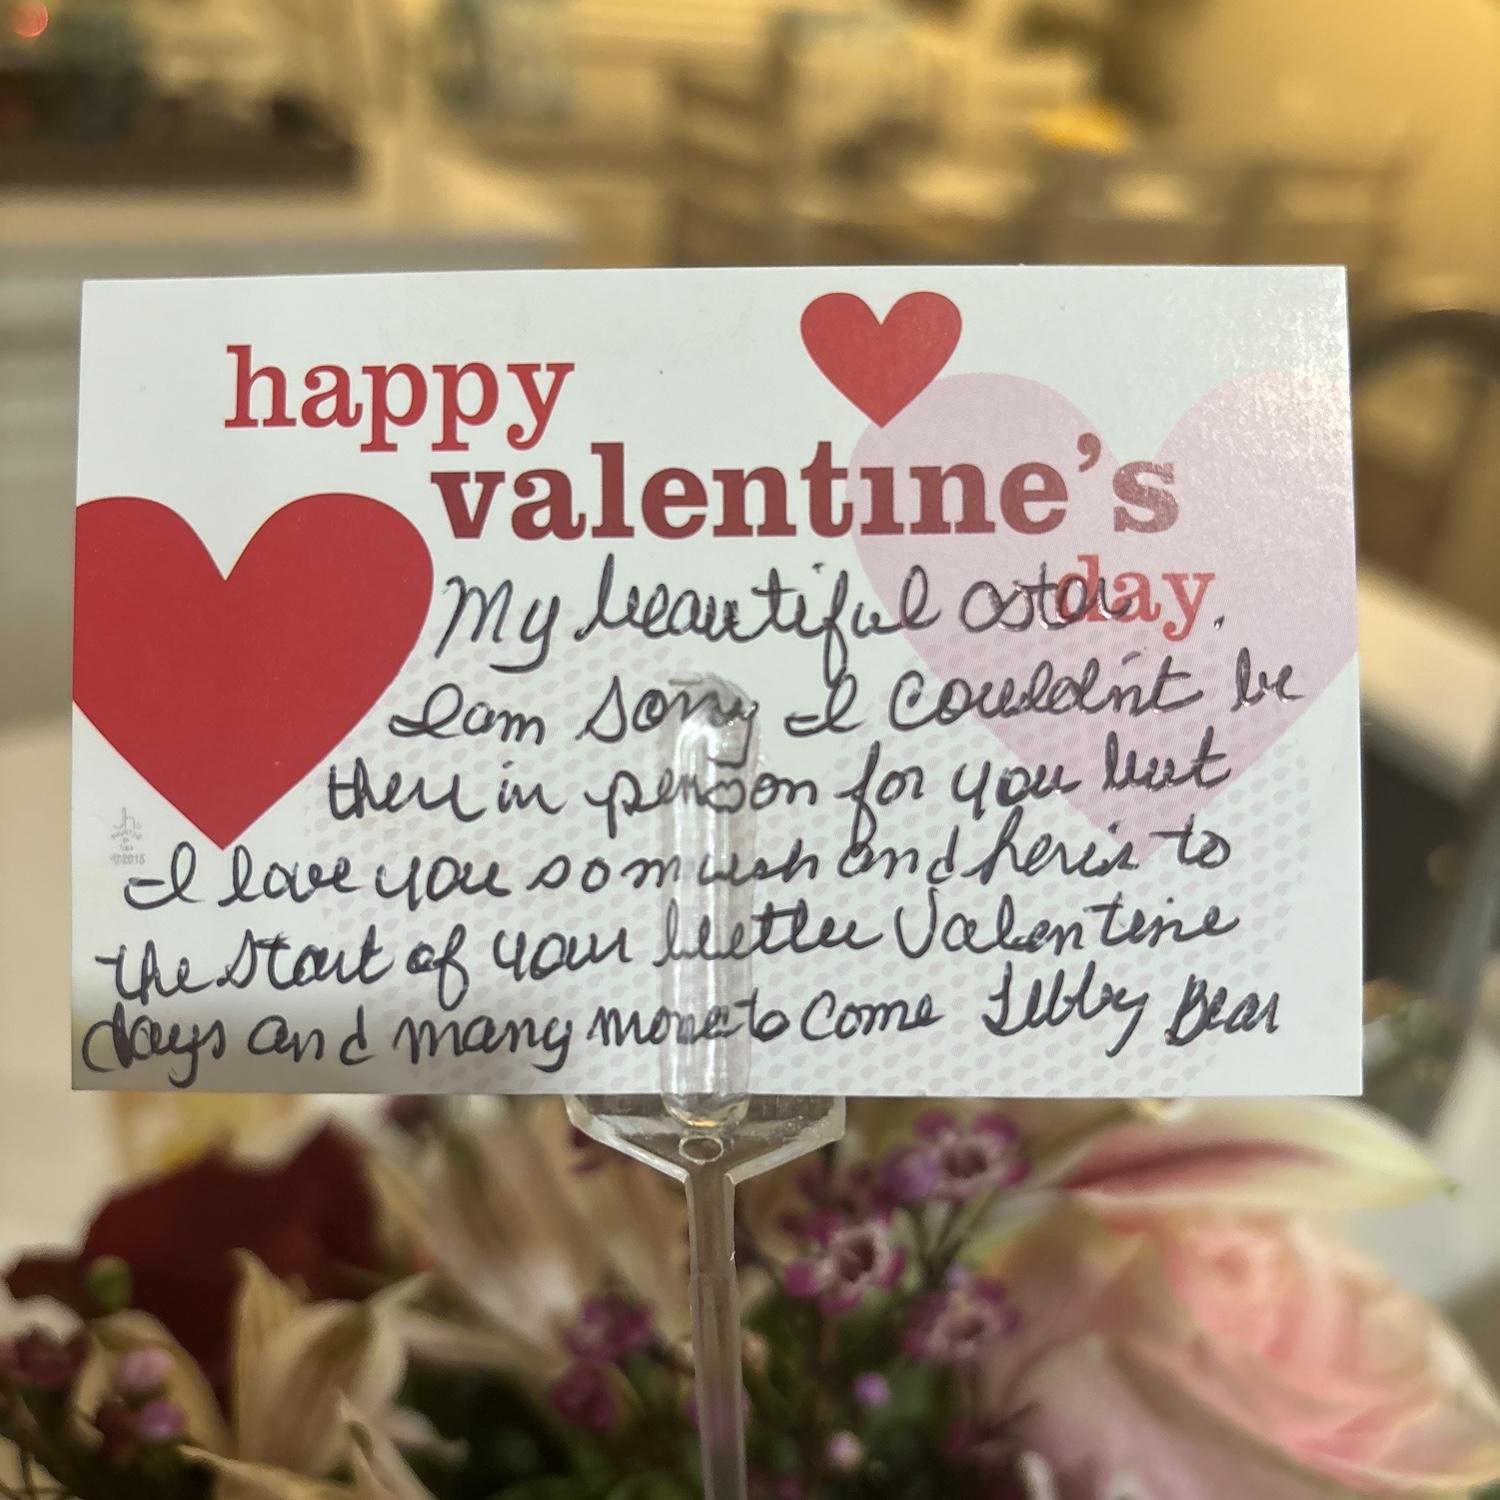 happy
valentine's
day
My beautiful
I am sorry I couldn't be
there in person for you but
I love you so much and here's to
the start of your better Valentine
days and many more to come Libby Bear
©2015